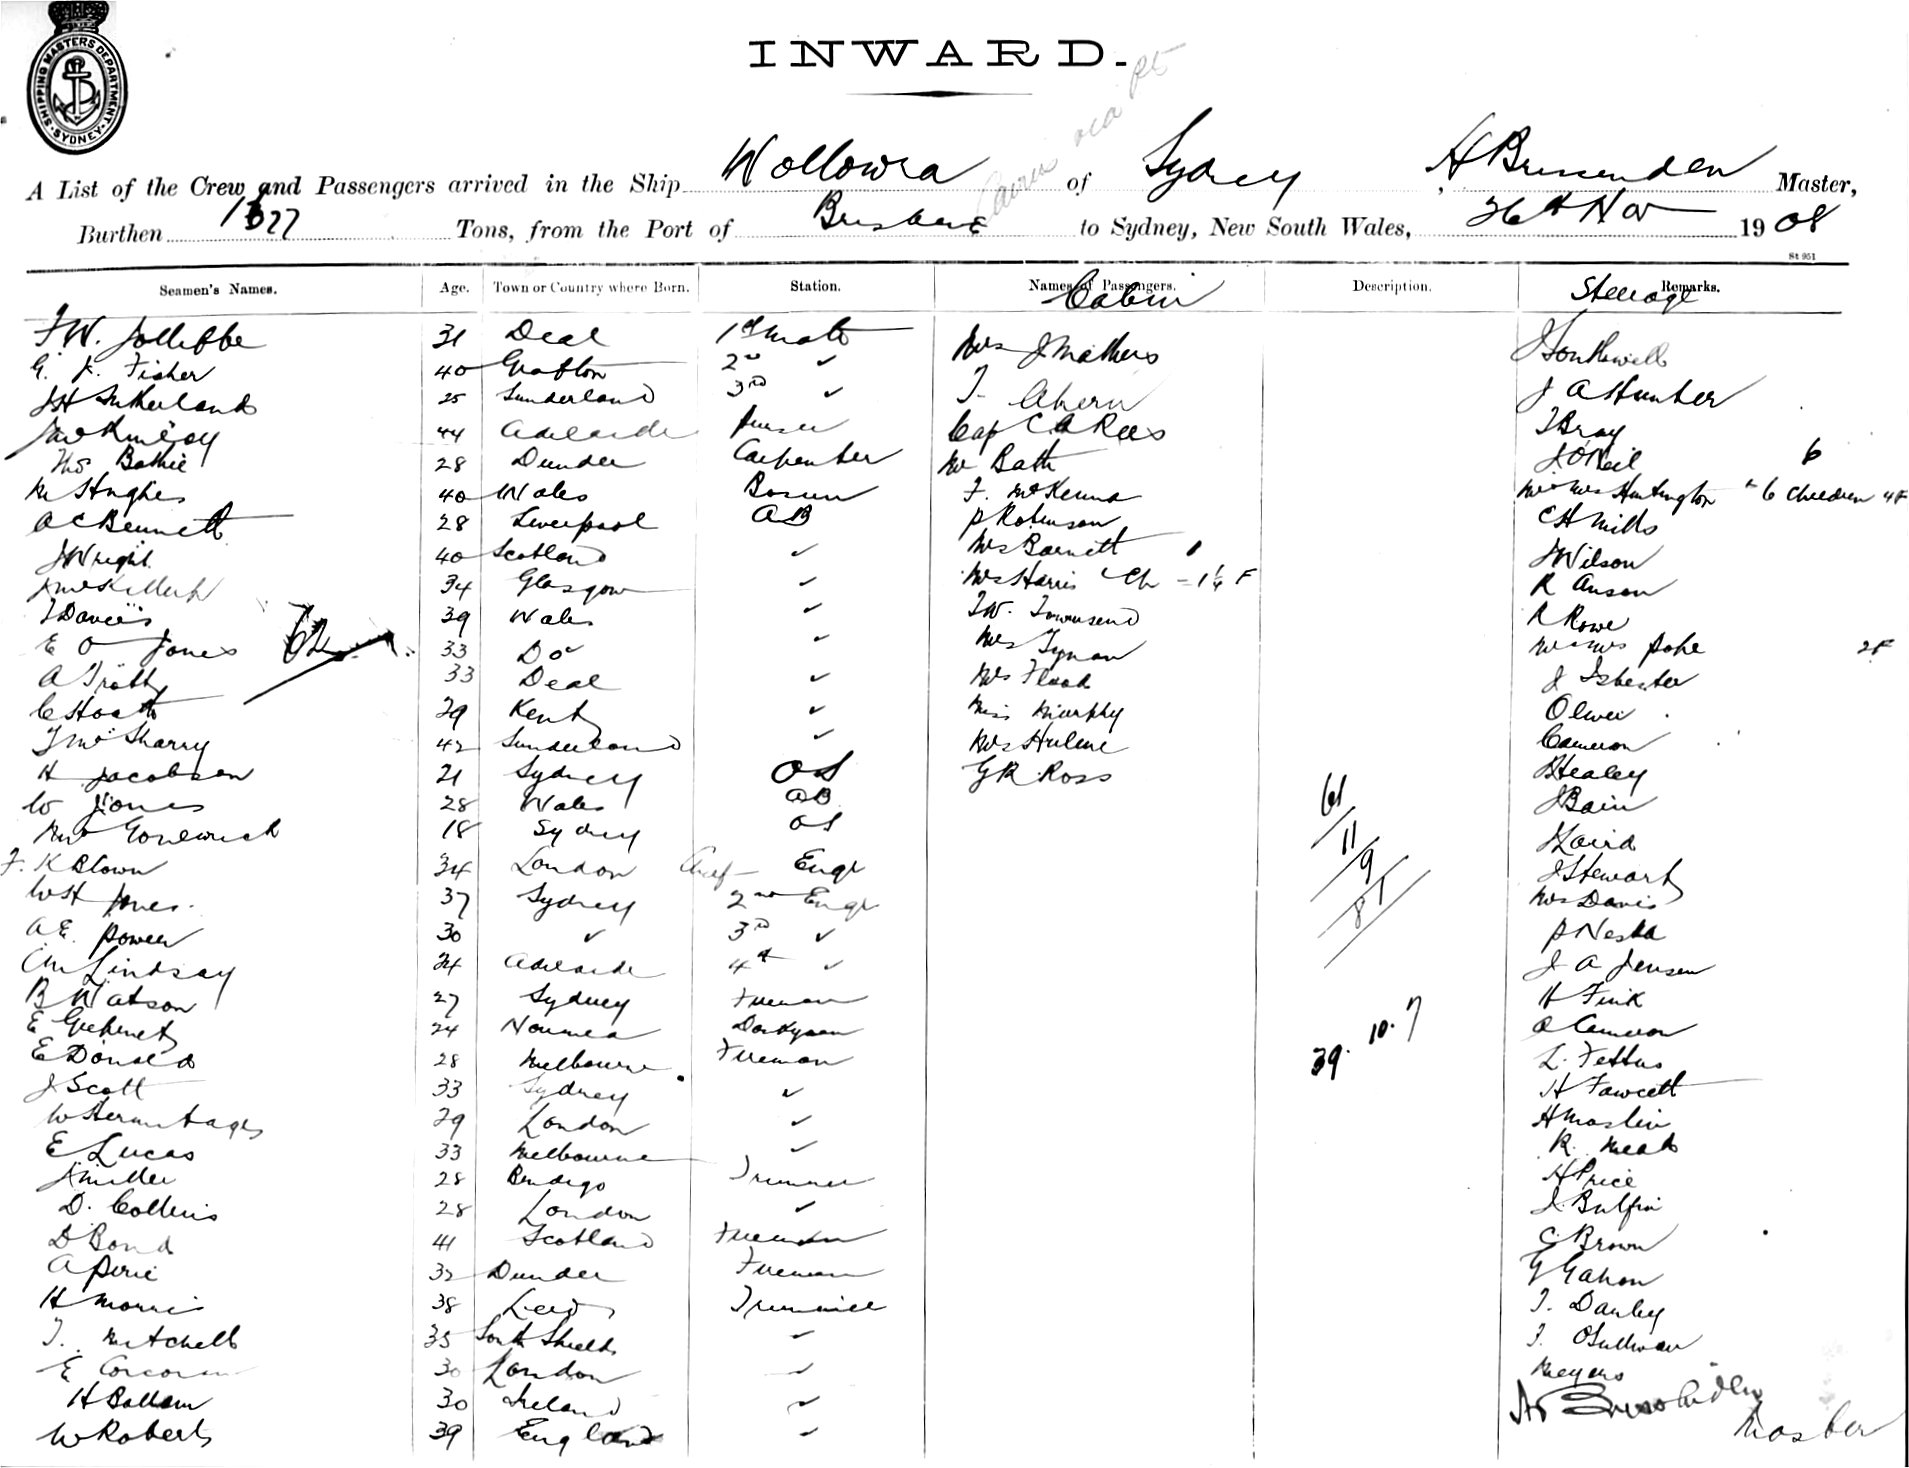 SHIPPING MASTERS DEPARTMENT. SYDNEY.
INWARD.
Cairns via
A List of the Crew and Passengers arrived in the Ship Wollowra of Sydney A Brussenden Master,
Burthen Tons, from the Port of Brisbane to Sydney, New South Wales, 26th Nov 1908
St 951
Seamen's Names. Age. Town or Country where Born. Station. Names of Passengers. Description. Remarks.
Cabin Steerage
F W. Jolliffe 31 Deal 1st Mate Mrs J Mathers
G. K. Fisher 40 Grafton 2nd ✓ J Southwell
J H Sutherland 25 Sunderland 3rd ✓ T. Ahern J A Hunter
44 Adelaide Purser Cap C A Rees T Bray
Thos Bathie 28 Dundee Carpenter Mr Bath J O'Neil 6
M Hughes 40 Wales Bosun F. McKenna Mr & Mrs Huntington & 6 children 4F
A C Bennett 28 Liverpool AB P Robinson C H Mills
J Wright 40 Scotland ✓ Mrs Barnett J Wilson
34 Glasgow ✓ Mrs Harris Ch = 1 1/4 F R Anson
T Davies 39 Wales ✓ T W. Townsend R Rowe
E O Jones 33 Do ✓ Mrs Tynan Mr & Mrs Pohe 2F
A Trotty 33 Deal ✓ Mrs Flood J Isbester
C Hoath 29 Kent ✓ Miss Murphy Oliver
T McSharry 42 Sunderland ✓ Mrs Hulme Cameron
H Jacobsen 21 Sydney OS G R Ross B Healey
W Jones 28 Wales AB J Bain
18 Sydney OS 61 Laird
F. K Blown 34 London Chief Engr 11 J Stewart
W H Jones 37 Sydney 2nd Engr 9 Mrs Davis
A. E. Power 30 ✓ 3rd ✓ 81 P Nesta
C M Lindsay 24 Adelaide 4th ✓ J A Jensen
B Watson 27 Sydney Fireman H Fink
E 24 Noumea Donkyman 39. 10. 7 A Cameron
E Donald 28 Melbourne Fireman L. Fettus
J Scott 33 Sydney ✓ H Fawcett
W Hermitage 29 London ✓ H Maslin
E Lucas 33 Melbourne ✓ R. Mead
J Miller 28 Bendigo Trimmer H Price
D. Collins 28 London ✓ J. Bulfin
D Bond 41 Scotland Fireman C Brown
A Pirie 32 Dundee Fireman G Gahan
H Morris 38 Leeds Trimmer T. Danby
T. Mitchell 35 South Shields ✓ T. O'Sullivan
E Corcoran 30 London ✓ Meyers
H Ballam 30 Ireland ✓ A Brussenden
W Roberts 39 England ✓ Master